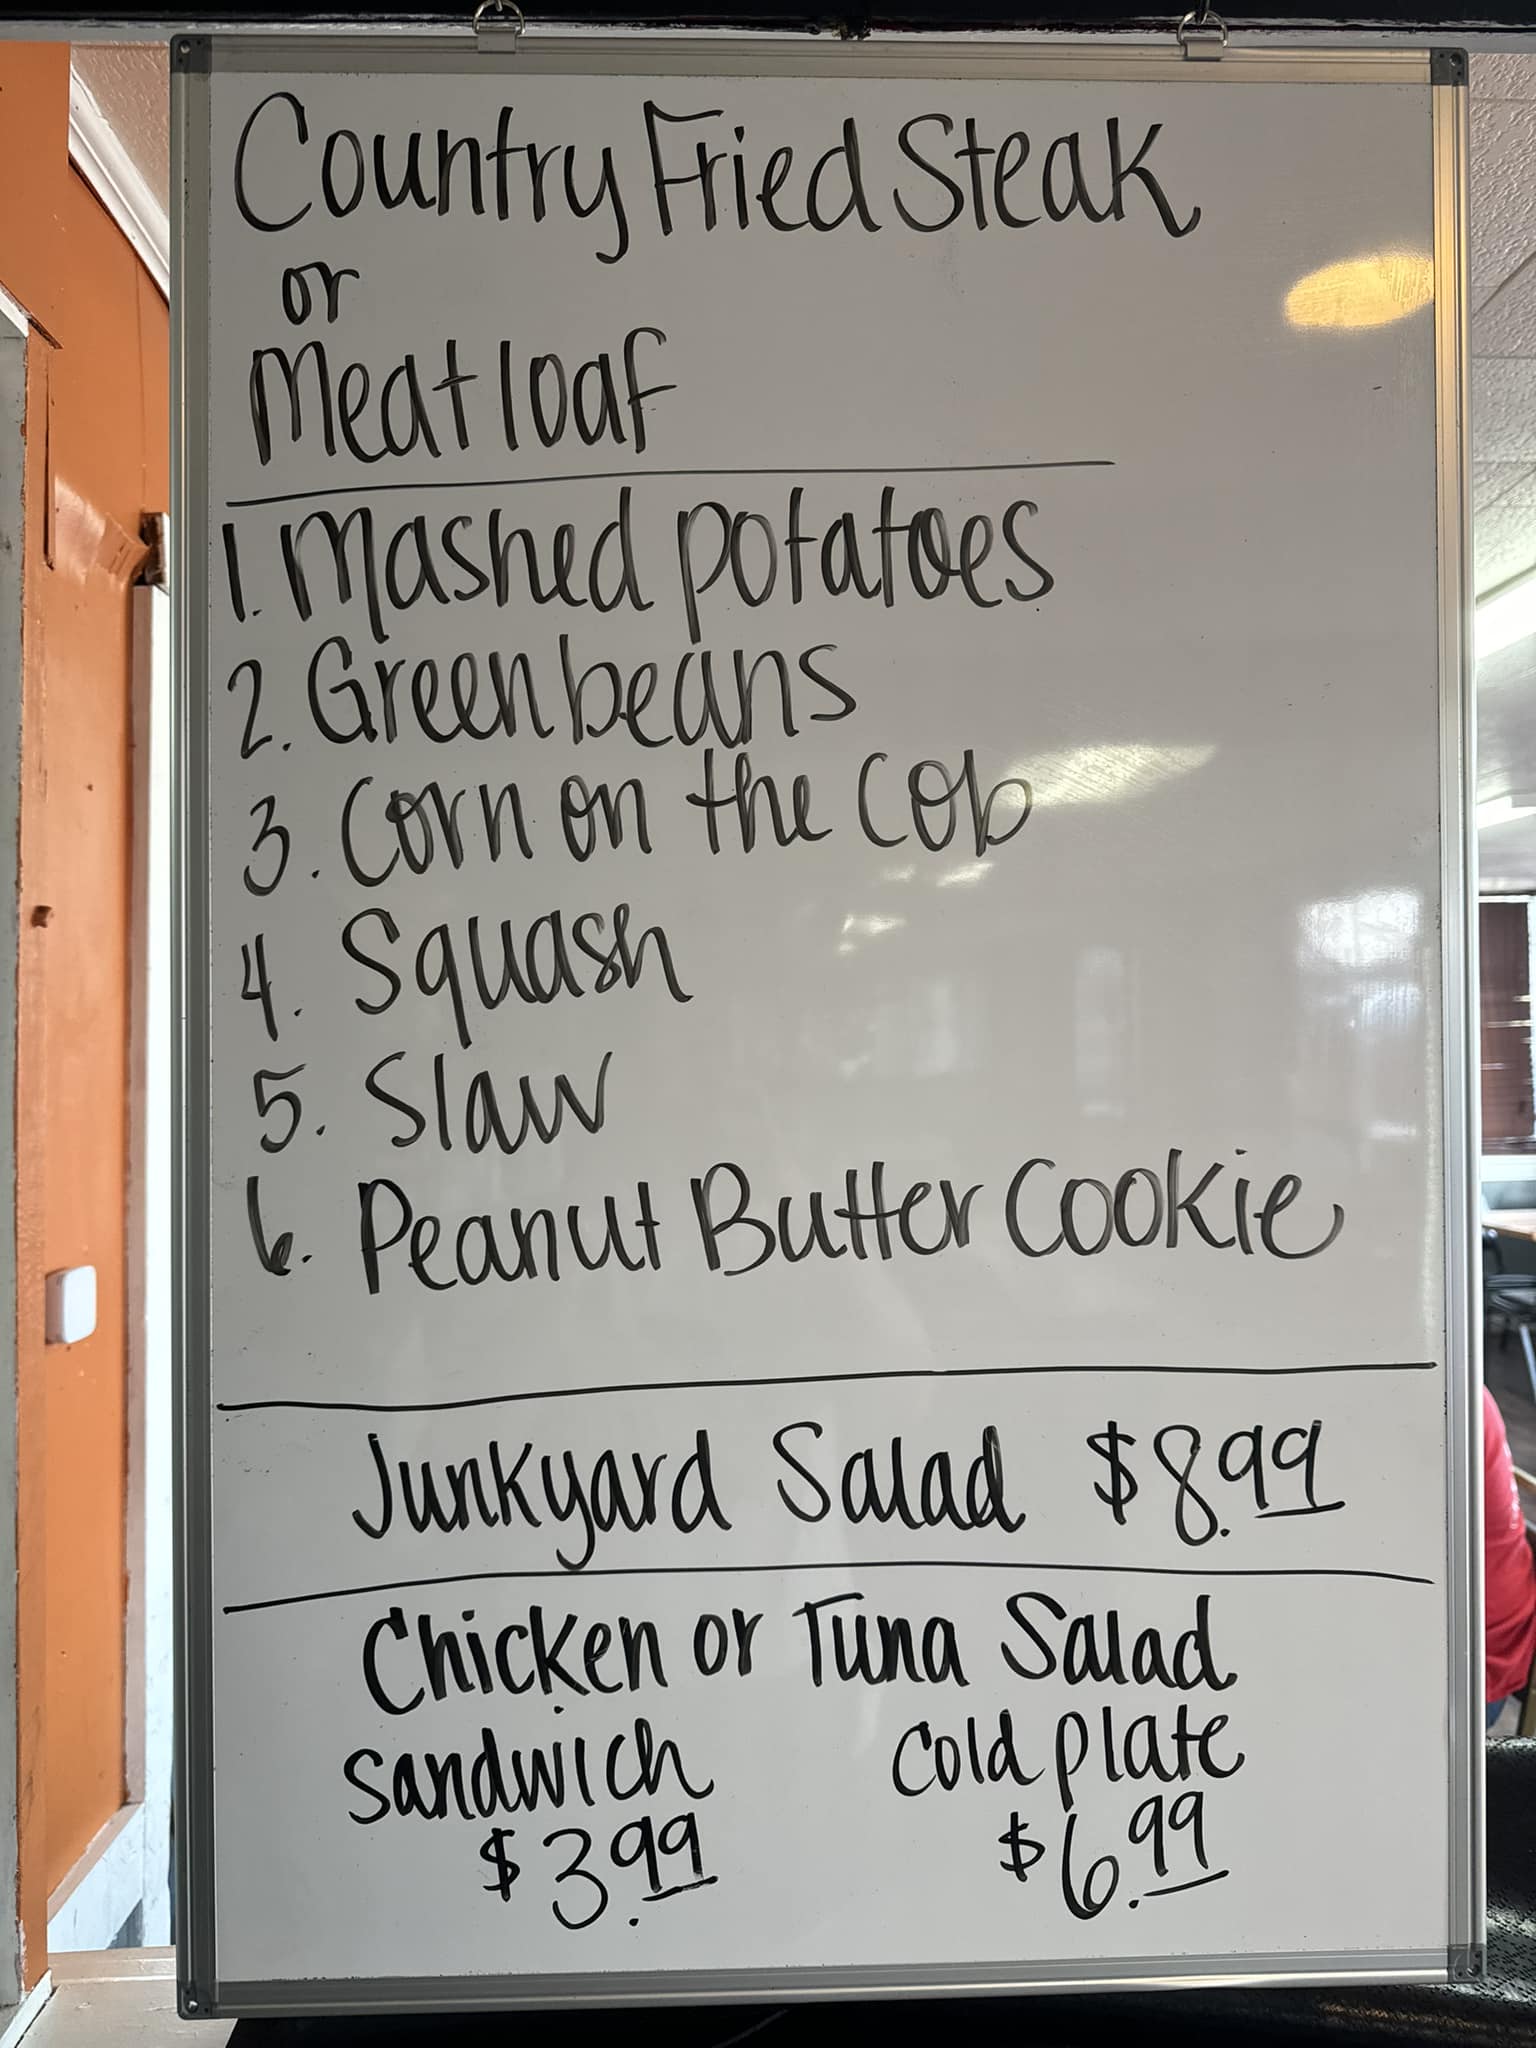 Country Fried Steak
or
Meatloaf
1. Mashed potatoes
2. Green beans
3. Corn on the cob
4. Squash
5. Slaw
6. Peanut Butter Cookie
Junkyard Salad $8.99
Chicken or Tuna Salad
Sandwich Cold plate
$3.99 $6.99